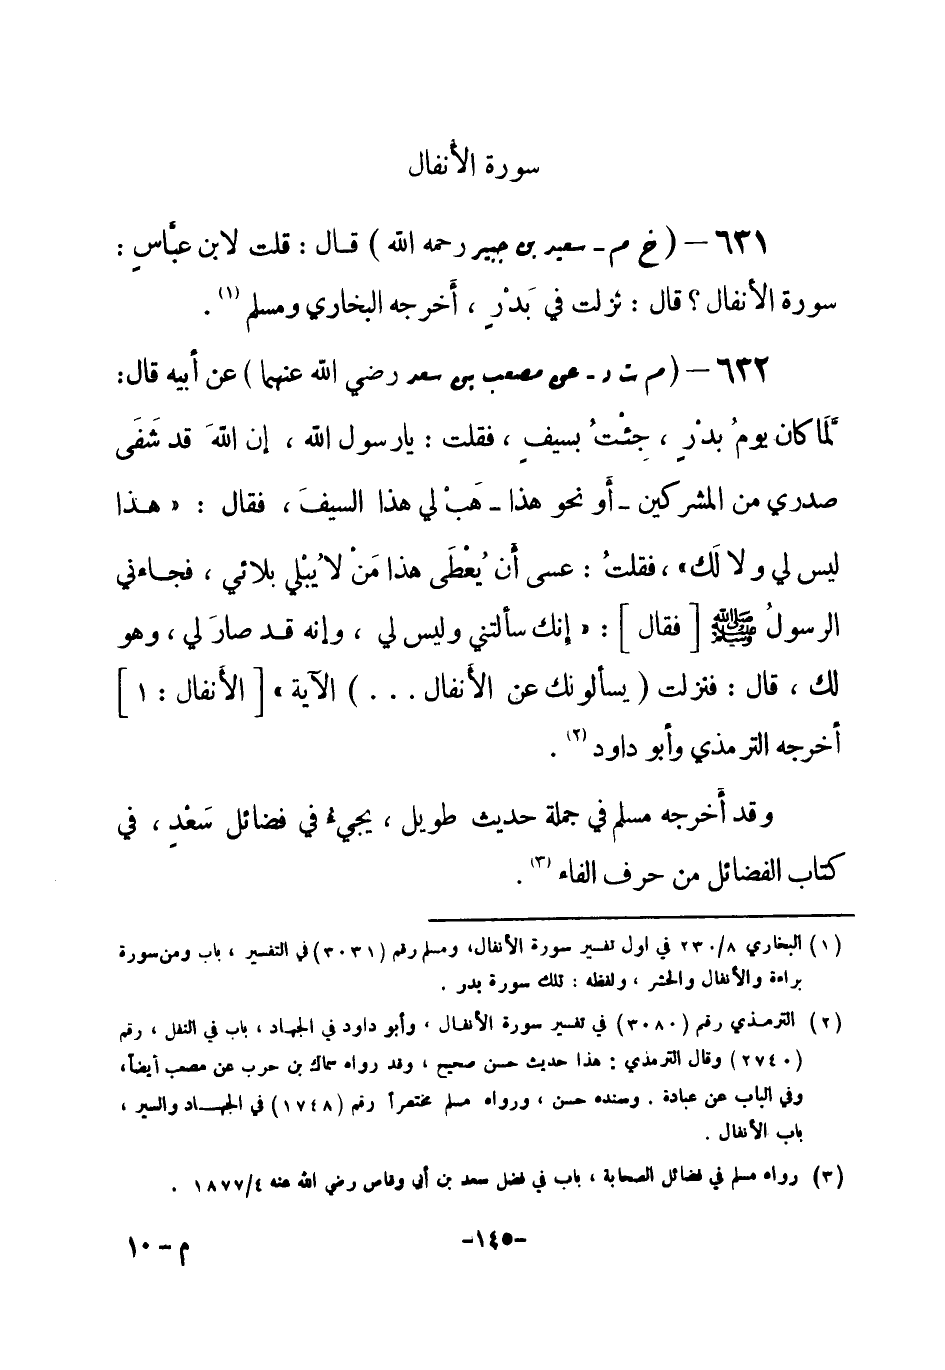 سورة الأنفال
٦٣١ – ( خ م ـ سعيد بن جبير رحمه الله ) قـال : قلت لابن عبَّاسٍ :
سورة الأنفال ؟ قال : نزلت في بَدْرٍ ، أَخرجه البخاري ومسلم (١) .
٦٣٢ – ( م ت د ـ عن مصعب بن سعد رضي الله عنهما ) عن أبيه قال:
لَمَّا كان يومُ بدْرٍ ، جِئْتُ بسيفٍ ، فقلت : يارسول الله ، إن اللهَ قد شَفَى
صدري من المشركين ـ أَو نحو هذا ـ هَبْ لي هذا السيفَ ، فقال : « هـذا
ليس لي ولا لَك» ، فقلتُ : عسى أَن يُعْطَى هذا مَنْ لا يُبْلي بلائي ، فجـاءني
الرسولُ ﷺ [ فقال ] : « إنك سألتني وليس لي ، وإنه قـد صارَ لي ، وهو
لك ، قال : فنزلت ( يسألونك عن الأنفال . . . ) الآية » [ الأَنفال : ١ ]
أخرجه الترمذي وأبو داود (٢) .
وقد أَخرجه مسلم في جملة حديث طويل ، يجيءُ في فضائل سَعْدٍ ، في
كتاب الفضائل من حرف الفاء (٣) .
(١) البخاري ٢٣٠/٨ في اول تفسير سورة الأنفال، ومسلم رقم (٣٠٣١) في التفسير ، باب ومن سورة
براءة والأنفال والحشر ، ولفظه : تلك سورة بدر .
(٢) الترمـذي رقم (٣٠٨٠) في تفسير سورة الأنفـال ، وأبو داود في الجهـاد ، باب في النفل ، رقم
(٢٧٤٠) وقال الترمذي : هذا حديث حسن صحيح ، وقد رواه سماك بن حرب عن مصعب أيضاً،
وفي الباب عن عبادة . وسنده حسن ، ورواه مسلم مختصراً رقم (١٧٤٨) في الجهـــاد والسير ،
باب الأنفال .
(٣) رواه مسلم في فضائل الصحابة ، باب في فضل سعد بن أبي وقاص رضي الله عنه ١٨٧٧/٤ .
–١٤٥–
م – ١٠